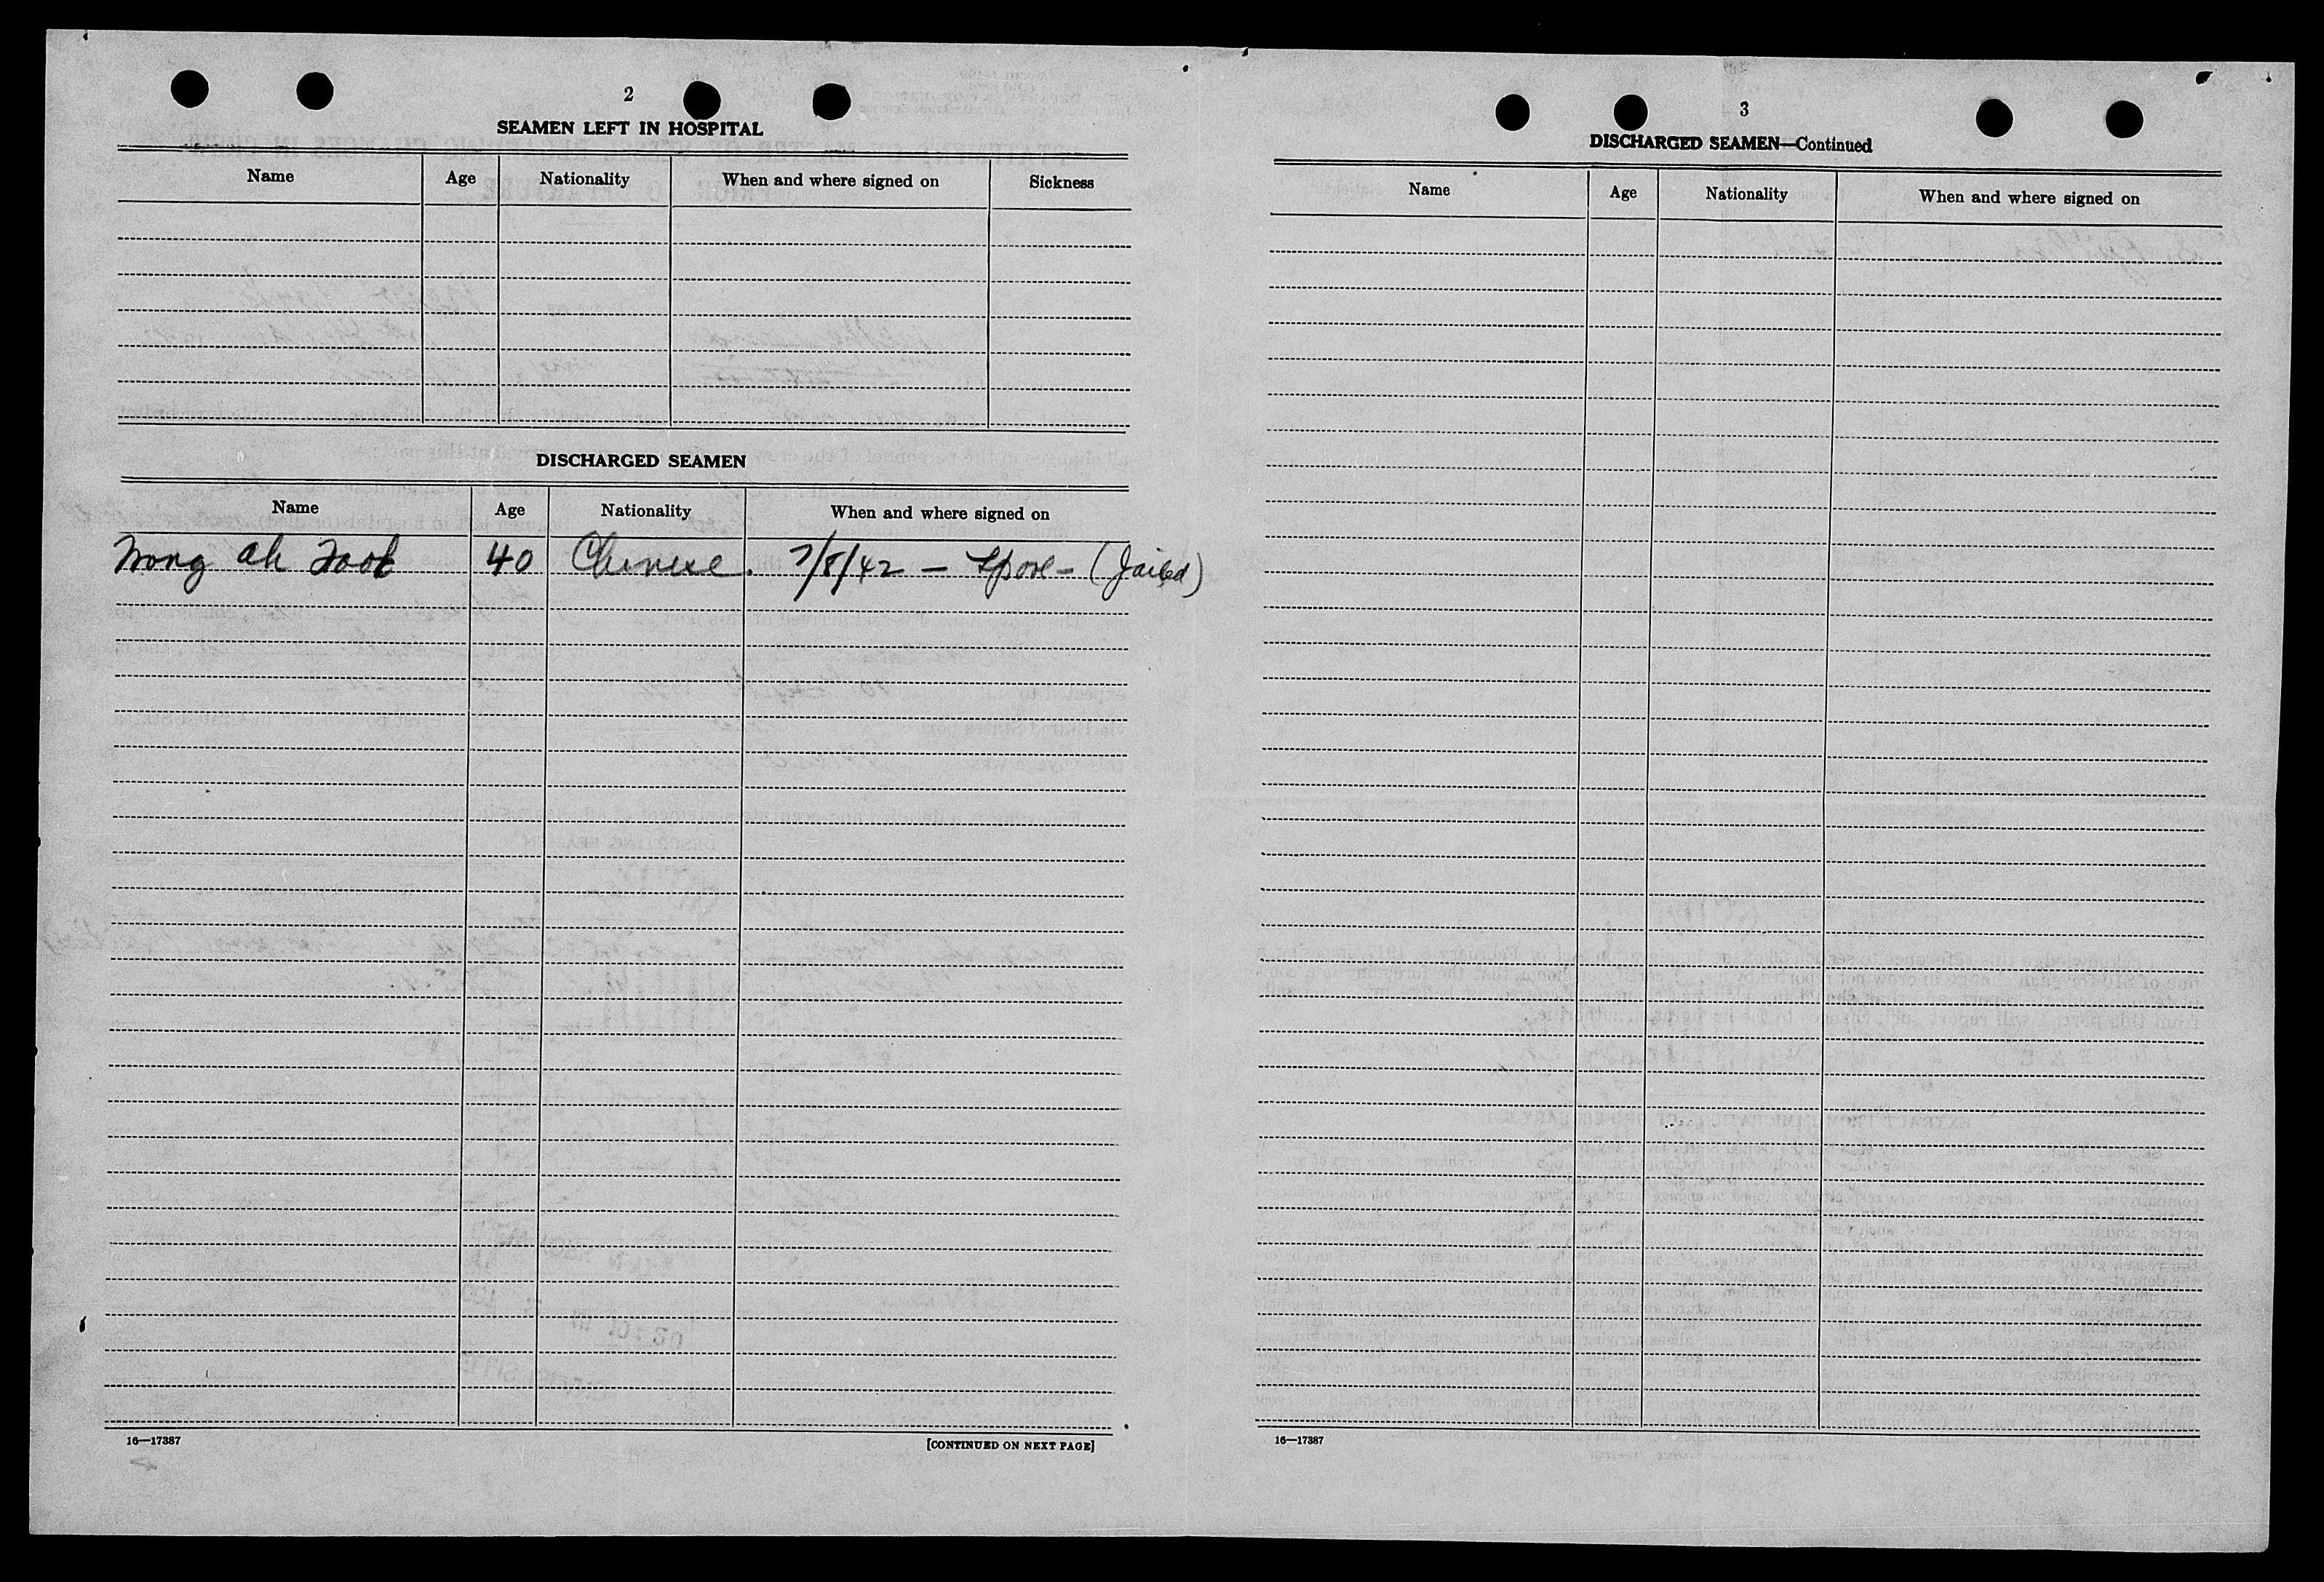 2
SEAMEN LEFT IN HOSPITAL
Name Age Nationality When and where signed on Sickness
DISCHARGED SEAMEN
Name Age Nationality When and where signed on
Wong Ah 40 Chinese. 7/8/42 — S'pore - (Jailed)
16—17387 [CONTINUED ON NEXT PAGE]
3
DISCHARGED SEAMEN—Continued
Name Age Nationality When and where signed on
16—17387